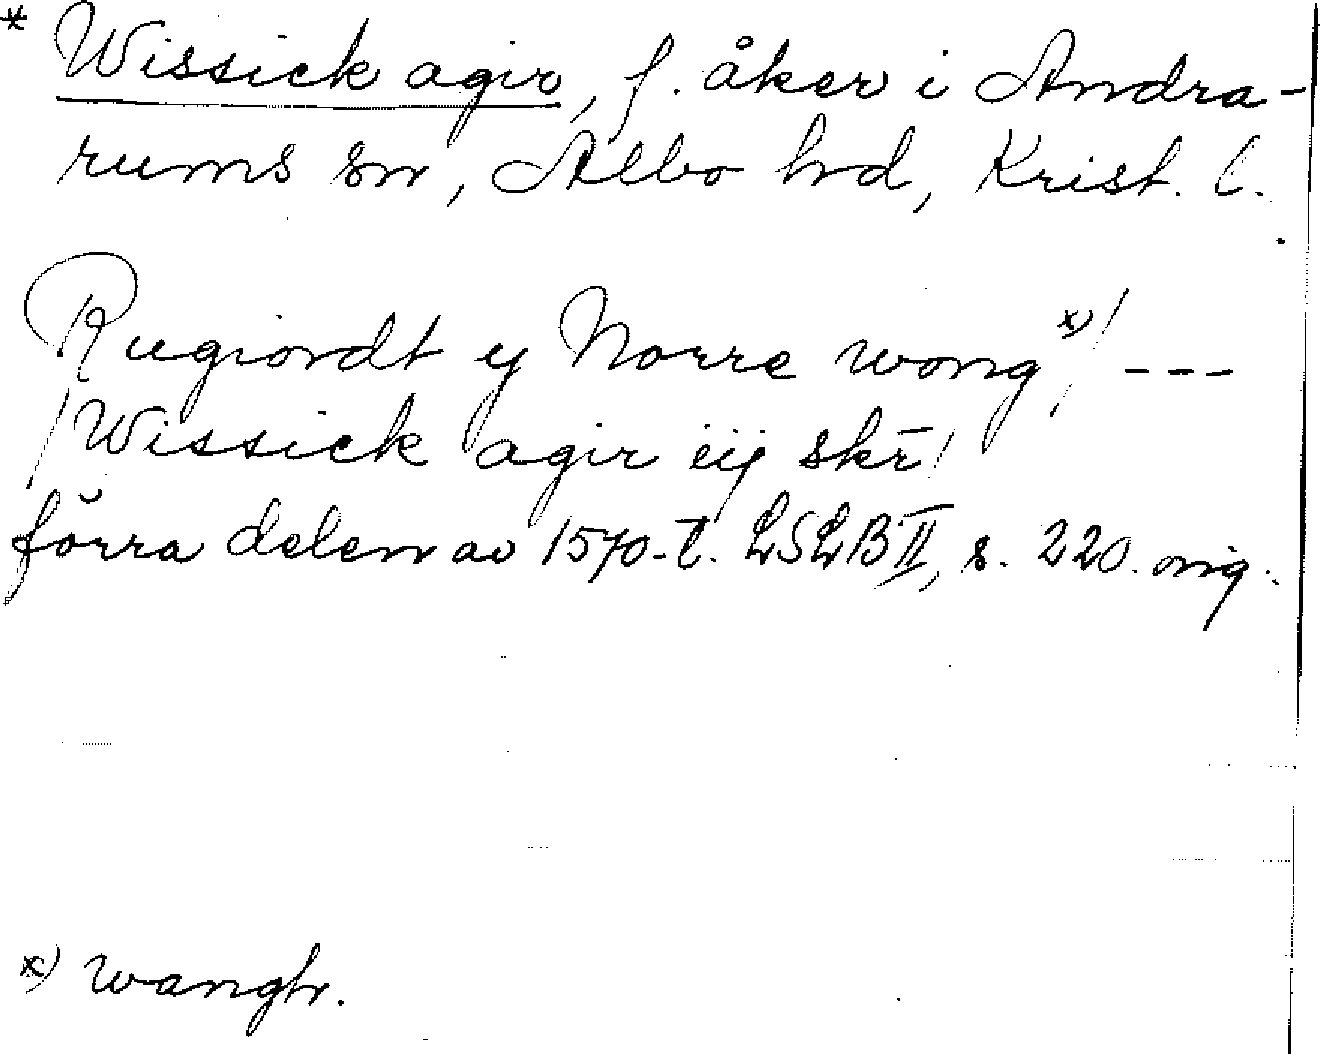 * Wissick agir, f. åker i Andra-
rums sn, Albo hd, Krist. l.
/Rugiordt y Norre wong*)/ ---
/Wissick agir iij skr̄/
förra delen av 1570-t. LSLB II, s. 220. orig.
*) wangr.